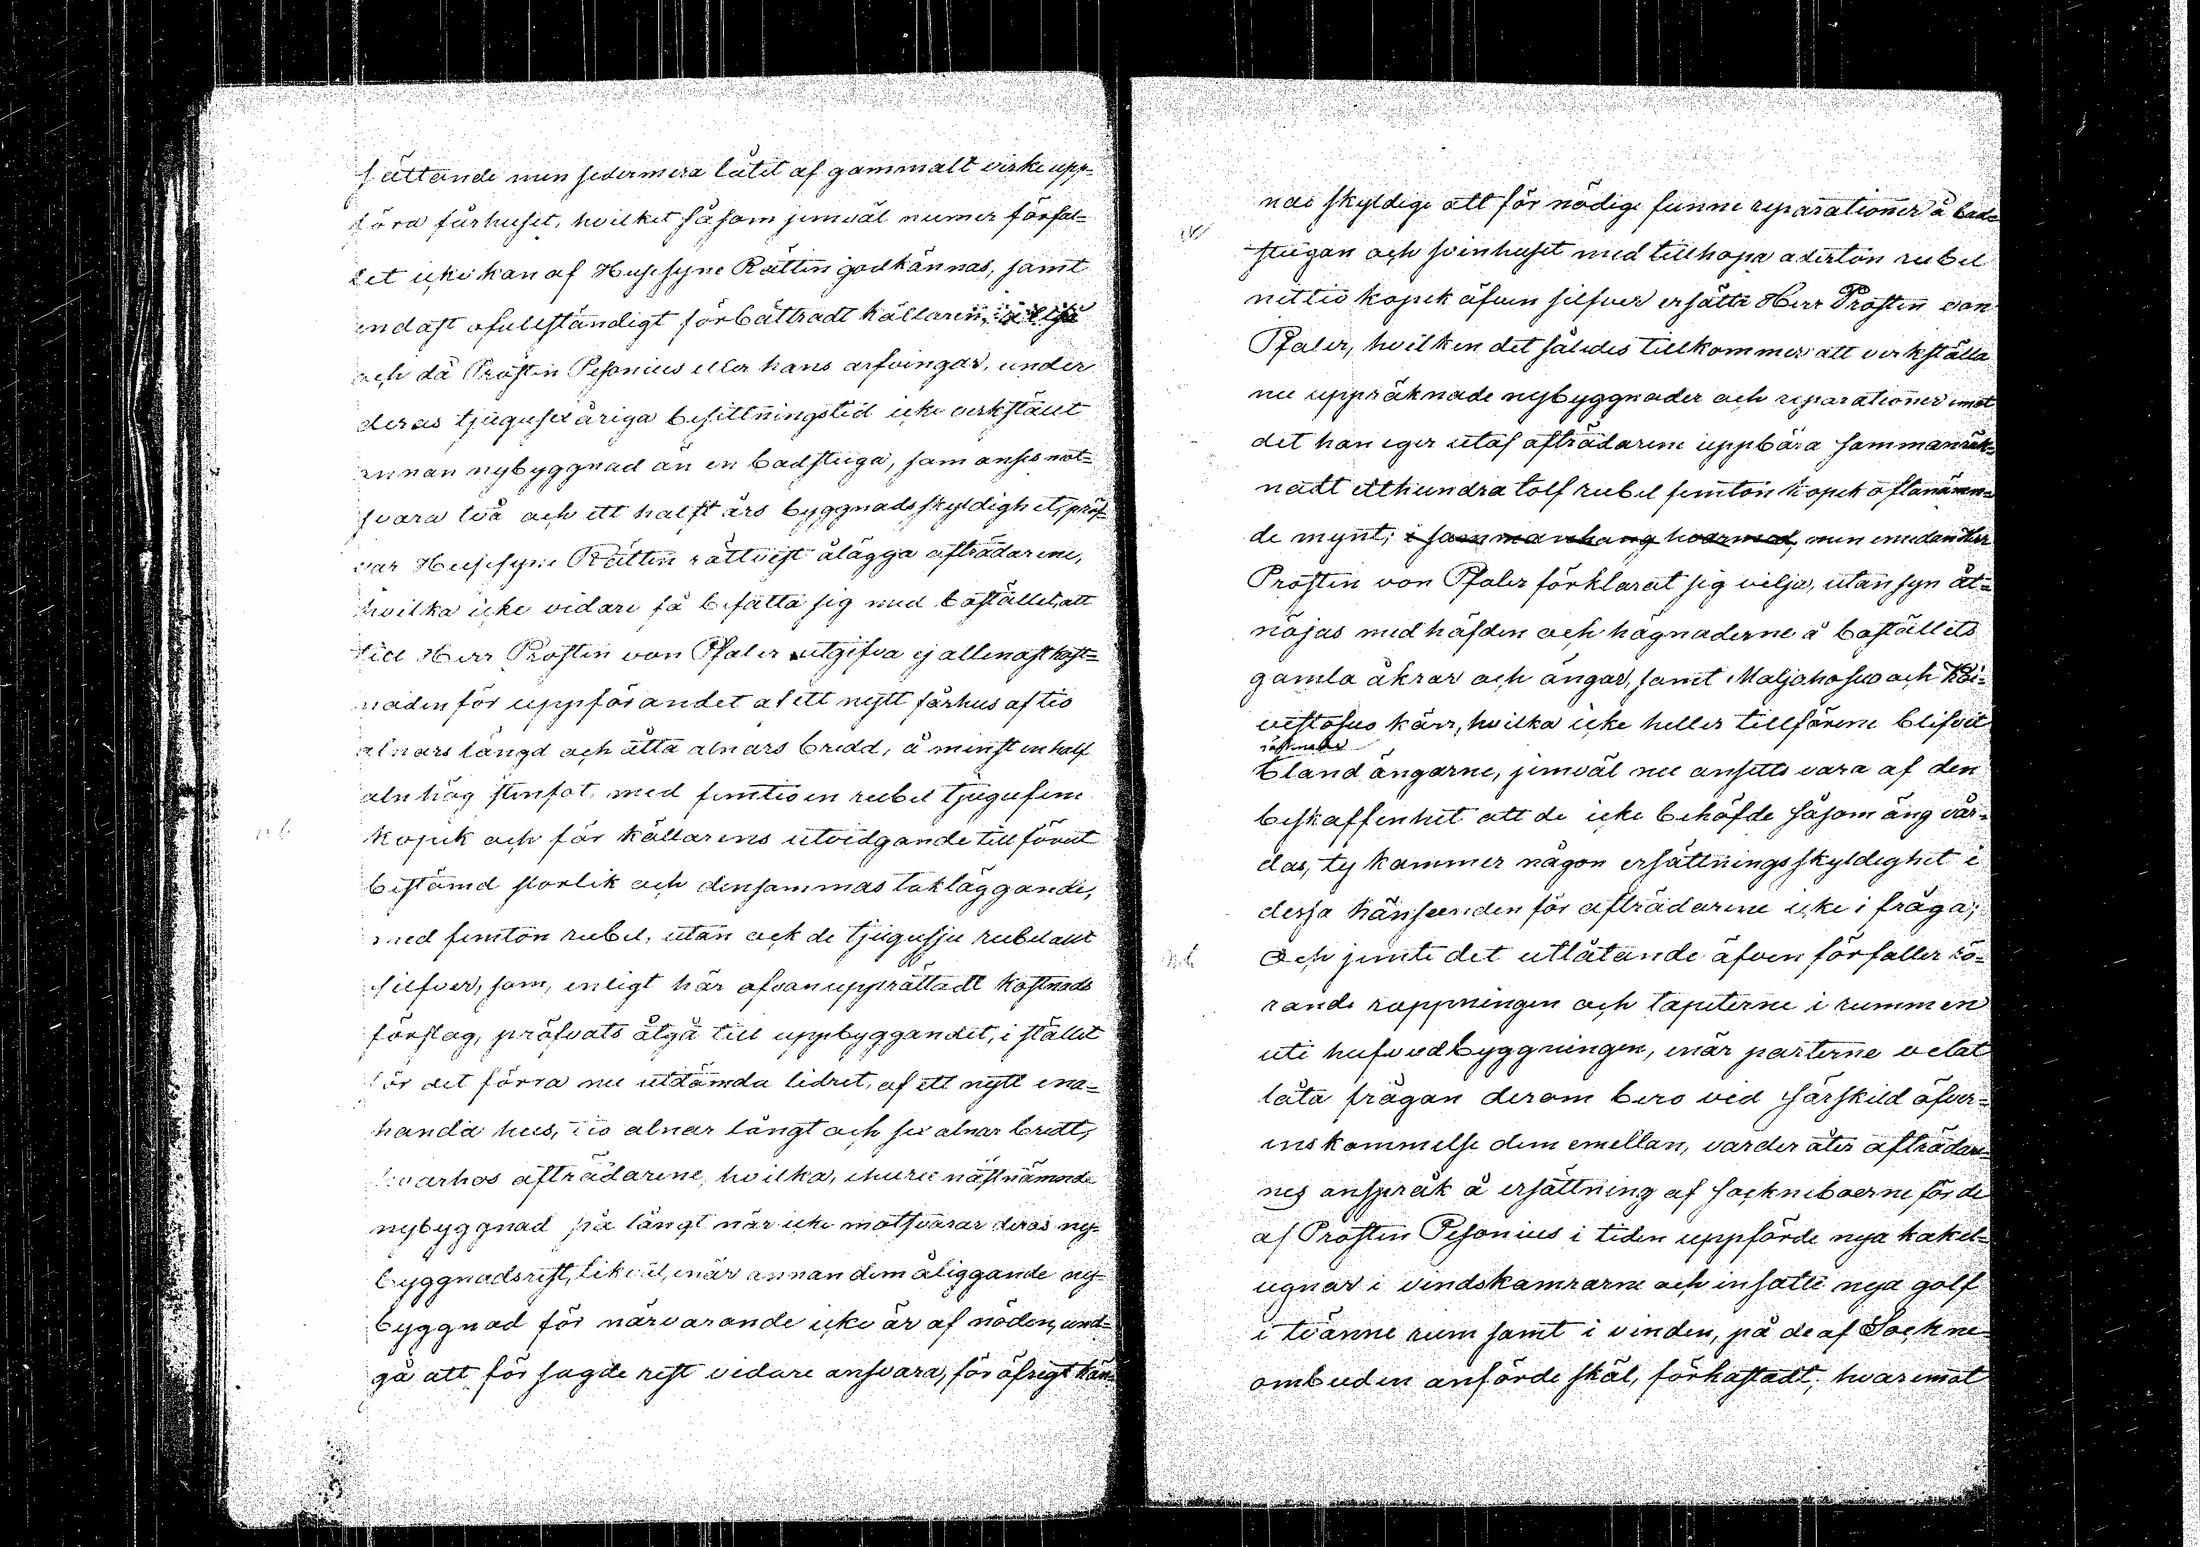 sättande men sedermera låtit af gammalt virke upp-
föra fårhuset, hvilket såsom jemväl numer förfal-
let icke kan af Husesyne Rätten godkännas, samt
endast ofullständigt förbättradt källaren,
och då Prosten Pesonius eller hans arfvingar, under
deras tjugusexåriga besittningstid icke verkställt
annan nybyggnad än en badstuga, som anses mot-
svara två och ett halft års byggnadsskyldighet, pröf-
var Husesyne Rätten rättvist ålägga afträdarene,
hvilka icke vidare få befatta sig med bostället, att
till Herr Prosten von Pfaler utgifva ej allenast kost-
naden för uppförandet af ett nytt fårhus af tio
alnars längd och åtta alnars bredd, å minst en half
aln hög stenfot, med femtioen rubel tjugufem
kopek och för källarens utvidgande till förut
bestämd storlek och densammas takläggande,
med femton rubel, utan ock de tjugusju rubel allt
silfver, som, enligt här ofvan upprättadt kostnads
förslag, pröfvats åtgå till uppbyggandet, i stället
för det förra nu utdömda lidret, af ett nytt ena-
handa hus, tio alnar långt och sex alnar bredt,
hvarhos afträdarene, hvilka, ehuru nästnämnde
nybyggnad på långt när icke motsvarar deras ny-
byggnadsrest, likväl, när annan dem åliggande ny-
byggnad för närvarande icke är af nöden, und-
gå att för sagde rest vidare ansvara, för öfrigt kän-
nas skyldige att för nödige funne reparationer å bad-
stugan och svinhuset med tillhopa aderton rubel
nittio kopek äfven silfver ersätta Herr Prosten von
Pfaler, hvilken det således tillkommer att verkställa
nu uppräknade nybyggnader och reparationer emot
det han eger utaf afträdarene uppbära sammanräk-
nadt etthundra tolf rubel femton kopek oftanämn-
de mynt; i sammanhang hvarmed, men emedan Herr
Prosten von Pfaler förklarat sig vilja, utan syn åt-
nöjas med häfden och hägnaderne å boställets
gamla åkrar och ängar, samt Maljahosuo och Koi-
vistosuo kärr, hvilka icke heller tillförene blifvit
räknade
bland ängarne, jemväl nu ansetts vara af den
beskaffenhet att de icke behöfde såsom äng vår-
das, ty kommer någon ersättningsskyldighet i
dessa hänseenden för afträdarene icke i fråga;
Och jemte det utlåtande äfven förfaller rö-
rande rappningen och tapeterne i rummen
uti hufvudbyggningen, när parterne velat
låta frågan derom bero vid särskild öfver-
enskommelse dem emellan, varder åter afträdare-
nes anspråk å ersättning af Socknebоerne för de
af Prosten Pesonius i tiden uppförde nya kakel-
ugnar i vindskamrarne och insatte nya golf
i tvänne rum samt i vinden, på de af Sockne-
ombuden anförde skäl, förkastadt; hvaremot